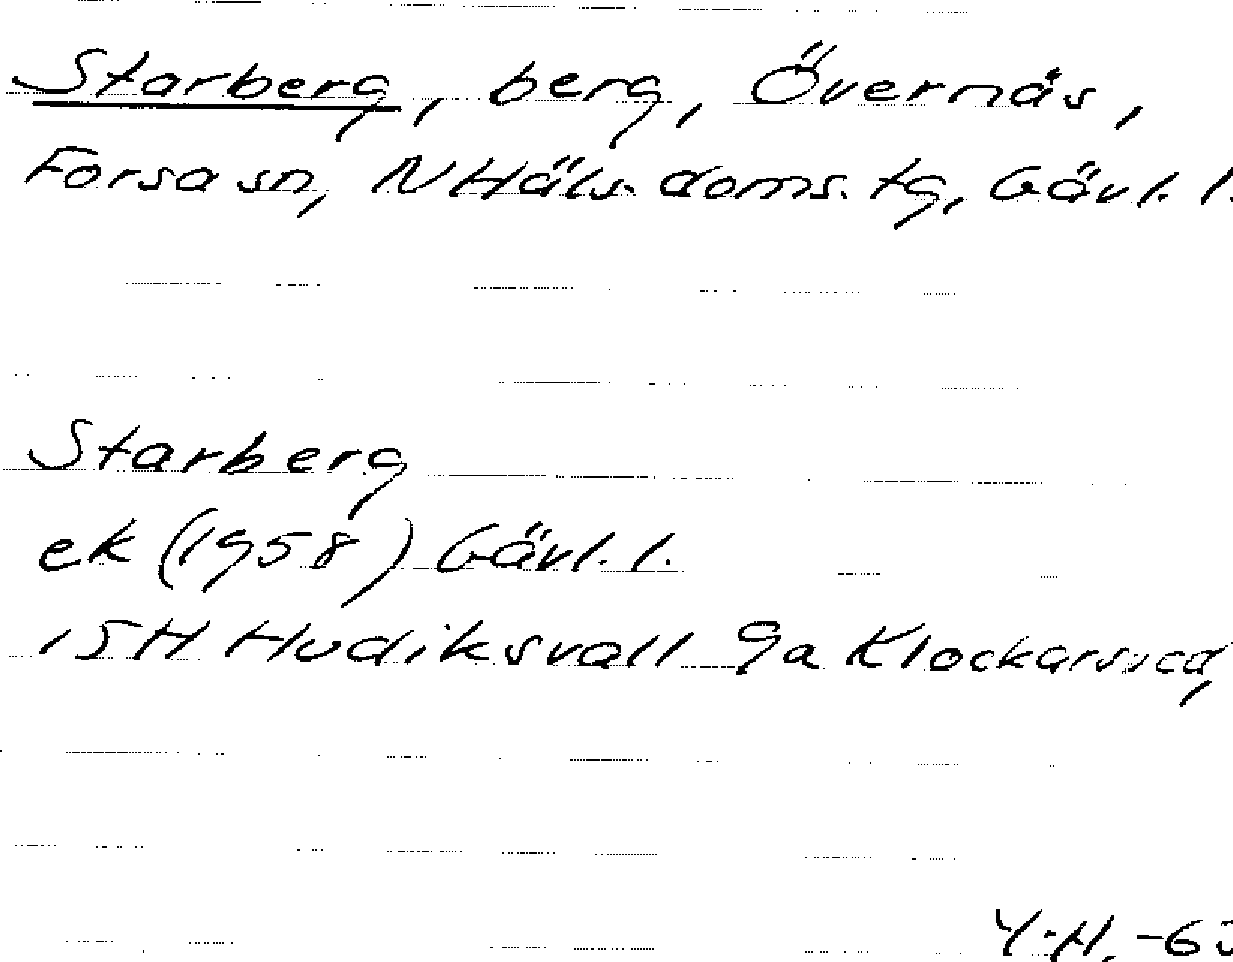 Starberg, berg, Övernäs,
Forsa sn, N Häls. doms. tg, Gävl. l.
Starberg
ek (1958) Gävl. l.
15H Hudiksvall 9a Klockarsved,
Y.H. -63